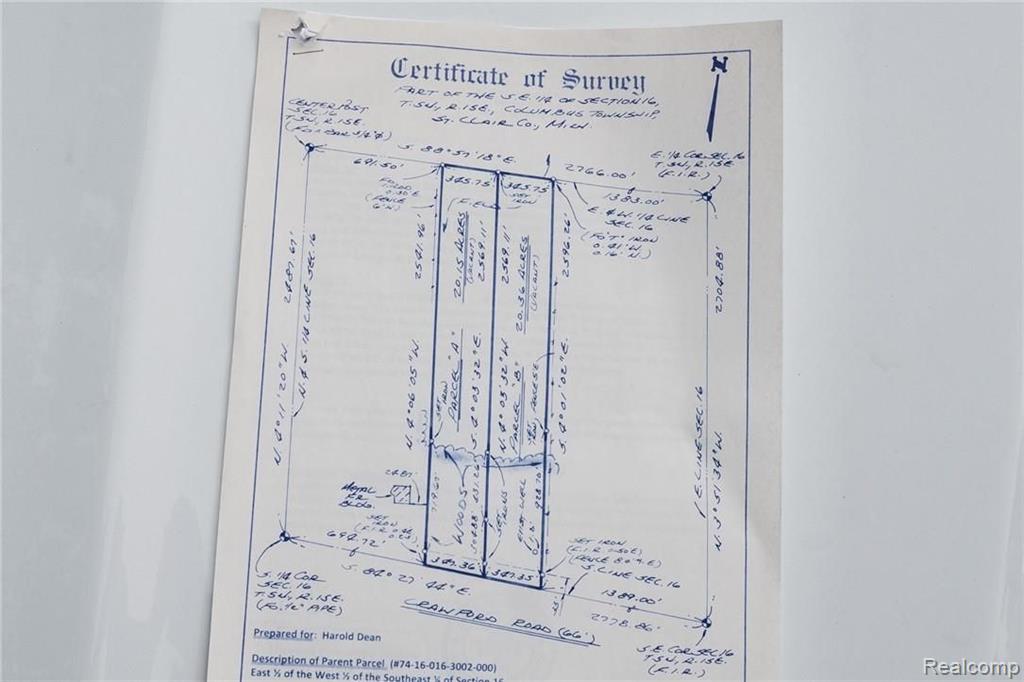 Certificate of Survey
PART OF THE S.E. 1/4 OF SECTION 16,
T.5N., R.15E., COLUMBUS TOWNSHIP,
ST. CLAIR CO., MICH.
N
CENTER POST
SEC. 16
T.5N., R.15E.
(FO. BAR 3/4"⌀)
E. 1/4 COR. SEC. 16
T.5N., R.15E.
(F.I.R.)
S. 88° 57' 18" E.
2766.00'
691.50'
345.75'
345.75'
1383.00'
E. & W. 1/4 LINE
SEC. 16
SET
IRON
(FENCE
6' N)
(FIELD)
(FO. "T" IRON
0.41' W.
0.16' N.)
2481.67'
N. & S. 1/4 LINE SEC. 16
N. 4° 11' 20" W.
2541.46'
N. 4° 06' 05" W.
20.15 ACRES
(VACANT)
PARCEL "A"
SET
IRON
2569.11'
S. 4° 03' 32" E.
2569.11'
N. 4° 03' 32" W
20.36 ACRES
(VACANT)
PARCEL "B"
2596.26'
S. 4° 01' 02" E.
2704.88'
E. LINE SEC. 16
N. 3° 51' 34" W.
METAL
BLDG.
WOODS
719.67'
928.70'
SET
IRONS
SET
IRON
694.72'
347.36'
347.35'
S. 84° 27' 44" E.
SET IRON
S. LINE SEC. 16
1389.00'
2778.86'
S. 1/4 COR
SEC. 16
T.5N., R.15E.
(FO. 1/2" PIPE)
CRAWFORD ROAD (66')
S.E. COR. SEC. 16
T.5N., R.15E.
(F.I.R.)
Prepared for: Harold Dean
Description of Parent Parcel (#74-16-016-3002-000)
East ½ of the West ½ of the Southeast ¼ of Section 16
Realcomp